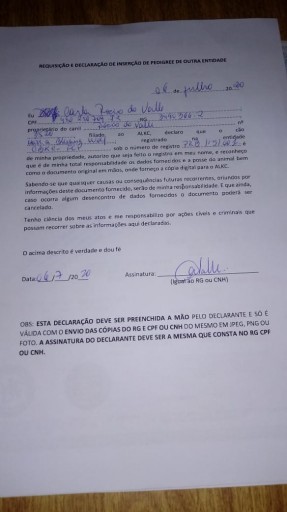 REQUISIÇÃO E DECLARAÇÃO DE INSERÇÃO DE PEDIGREE DE OUTRA ENTIDADE
de julho de 20
Eu do Valle
CPF RG
proprietário do canil do Valle nº
filiado ao ALKC, declaro que o cão
registrado na entidade
sob o número de registro é
de minha propriedade, autorizo que seja feito o registro em meu nome, e reconheço
que é de minha total responsabilidade os dados fornecidos e a posse do animal bem
como o documento original em mãos, onde forneço a cópia digital para o ALKC.
Sabendo-se que quaisquer causas ou consequências futuras recorrentes, oriundos por
informações deste documento fornecido, serão de minha responsabilidade. E que ainda,
caso ocorra algum desencontro de dados fornecidos o documento poderá ser
cancelado.
Tenho ciência dos meus atos e me responsabilizo por ações cíveis e criminais que
possam recorrer sobre as informações aqui declaradas.
O acima descrito é verdade e dou fé
Data: /7 /2020 Assinatura:
(Igual ao RG ou CNH)
OBS: ESTA DECLARAÇÃO DEVE SER PREENCHIDA A MÃO PELO DECLARANTE E SÓ É
VÁLIDA COM O ENVIO DAS CÓPIAS DO RG E CPF OU CNH DO MESMO EM JPEG, PNG OU
FOTO. A ASSINATURA DO DECLARANTE DEVE SER A MESMA QUE CONSTA NO RG CPF
OU CNH.